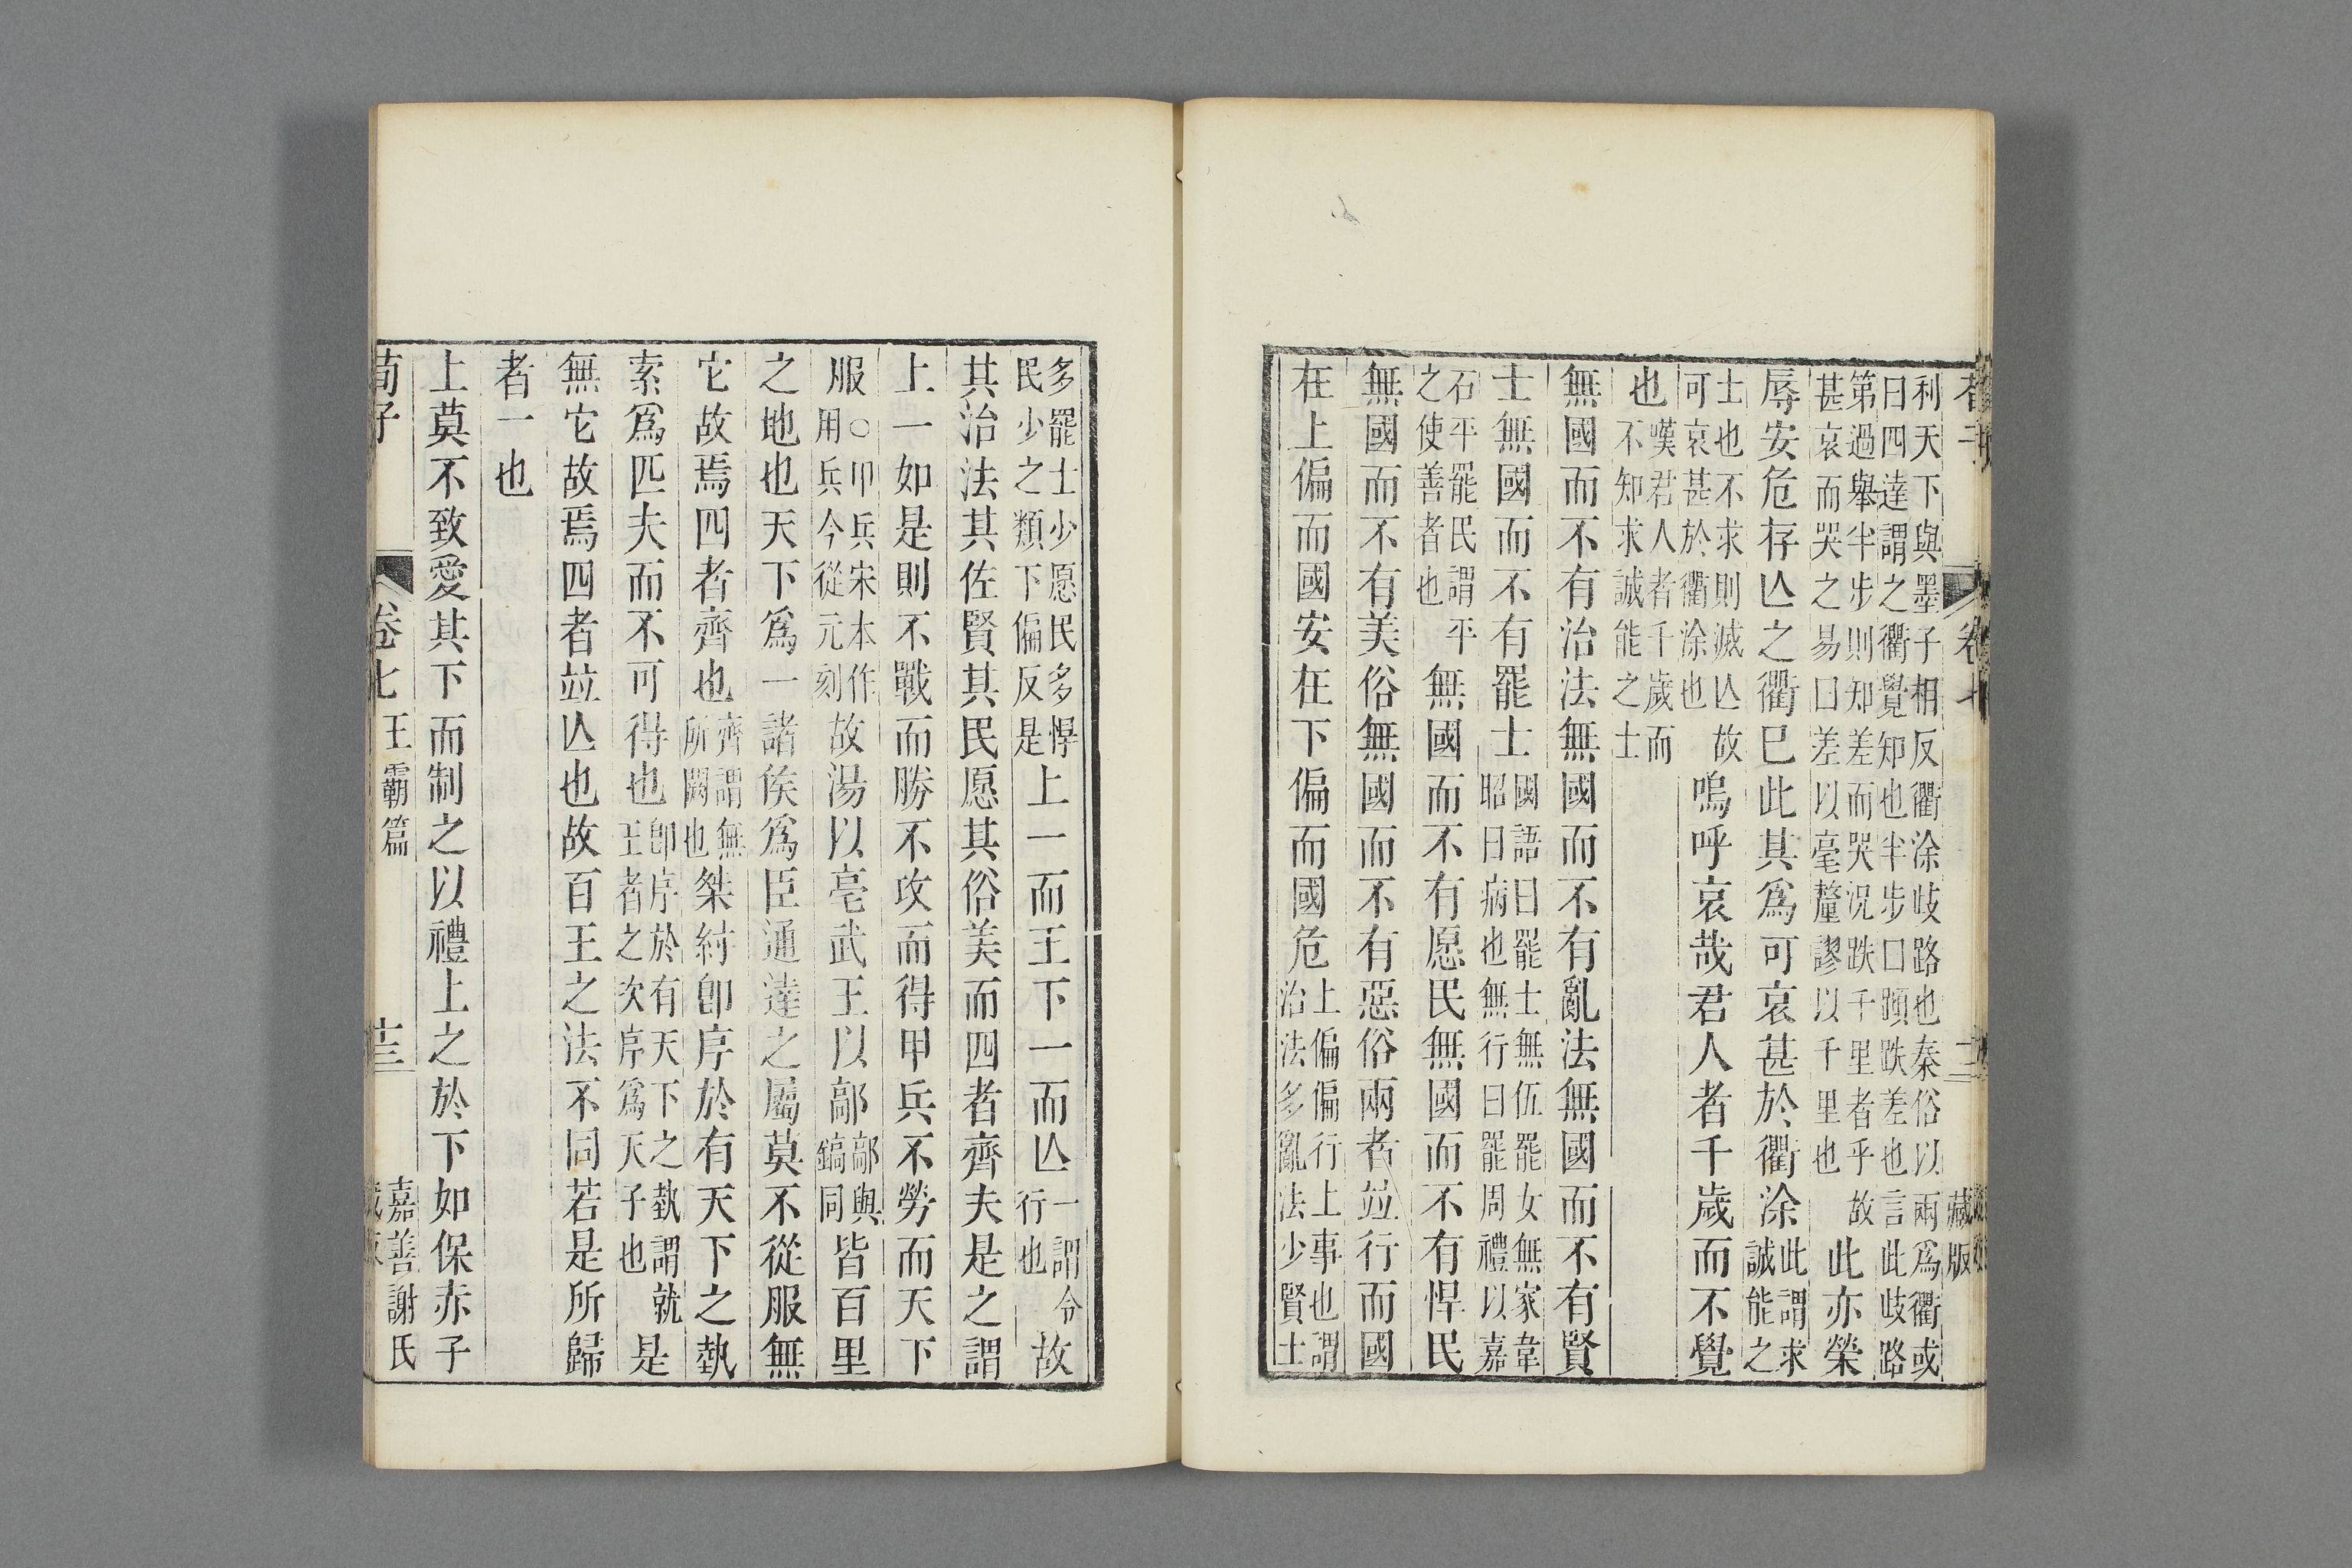 卷七
藏版
利天下與墨子相反衢涂歧路也秦俗以兩爲衢或
曰四達謂之衢覺知也半步曰蹞跌差也言此歧路
第過舉半步則知差而哭況跌千里者乎故
甚哀而哭之易曰差以毫釐謬以千里也此亦榮
辱安危存亾之衢已此其爲可哀甚於衢涂此謂求誠能之
士也不求則滅亾故可哀甚於衢涂也嗚呼哀哉君人者千歲而不覺
也嘆君人者千歲而不知求誠能之士
無國而不有治法無國而不有亂法無國而不有賢
士無國而不有罷士國語曰罷士無伍罷女無家韋昭曰病也無行曰罷周禮以嘉
石平罷民謂平之使善者也無國而不有愿民無國而不有悍民
無國而不有美俗無國而不有惡俗兩者竝行而國
在上偏而國安在下偏而國危上偏偏行上事也謂治法多亂法少賢士
多罷士少愿民多悍民少之類下偏反是上一而王下一而亾一謂令行也故
其治法其佐賢其民愿其俗美而四者齊夫是之謂
上一如是則不戰而勝不攻而得甲兵不勞而天下
服○甲兵宋本作用兵今從元刻故湯以亳武王以鄗鄗與鎬同皆百里
之地也天下爲一諸侯爲臣通達之屬莫不從服無
它故焉四者齊也齊謂無所闕也桀紂卽序於有天下之埶
索爲匹夫而不可得也卽序於有天下之埶謂就王者之次序爲天子也是
無它故焉四者竝亾也故百王之法不同若是所歸
者一也
上莫不致愛其下而制之以禮上之於下如保赤子
荀子 卷七 王霸篇 十三 嘉善謝氏藏版